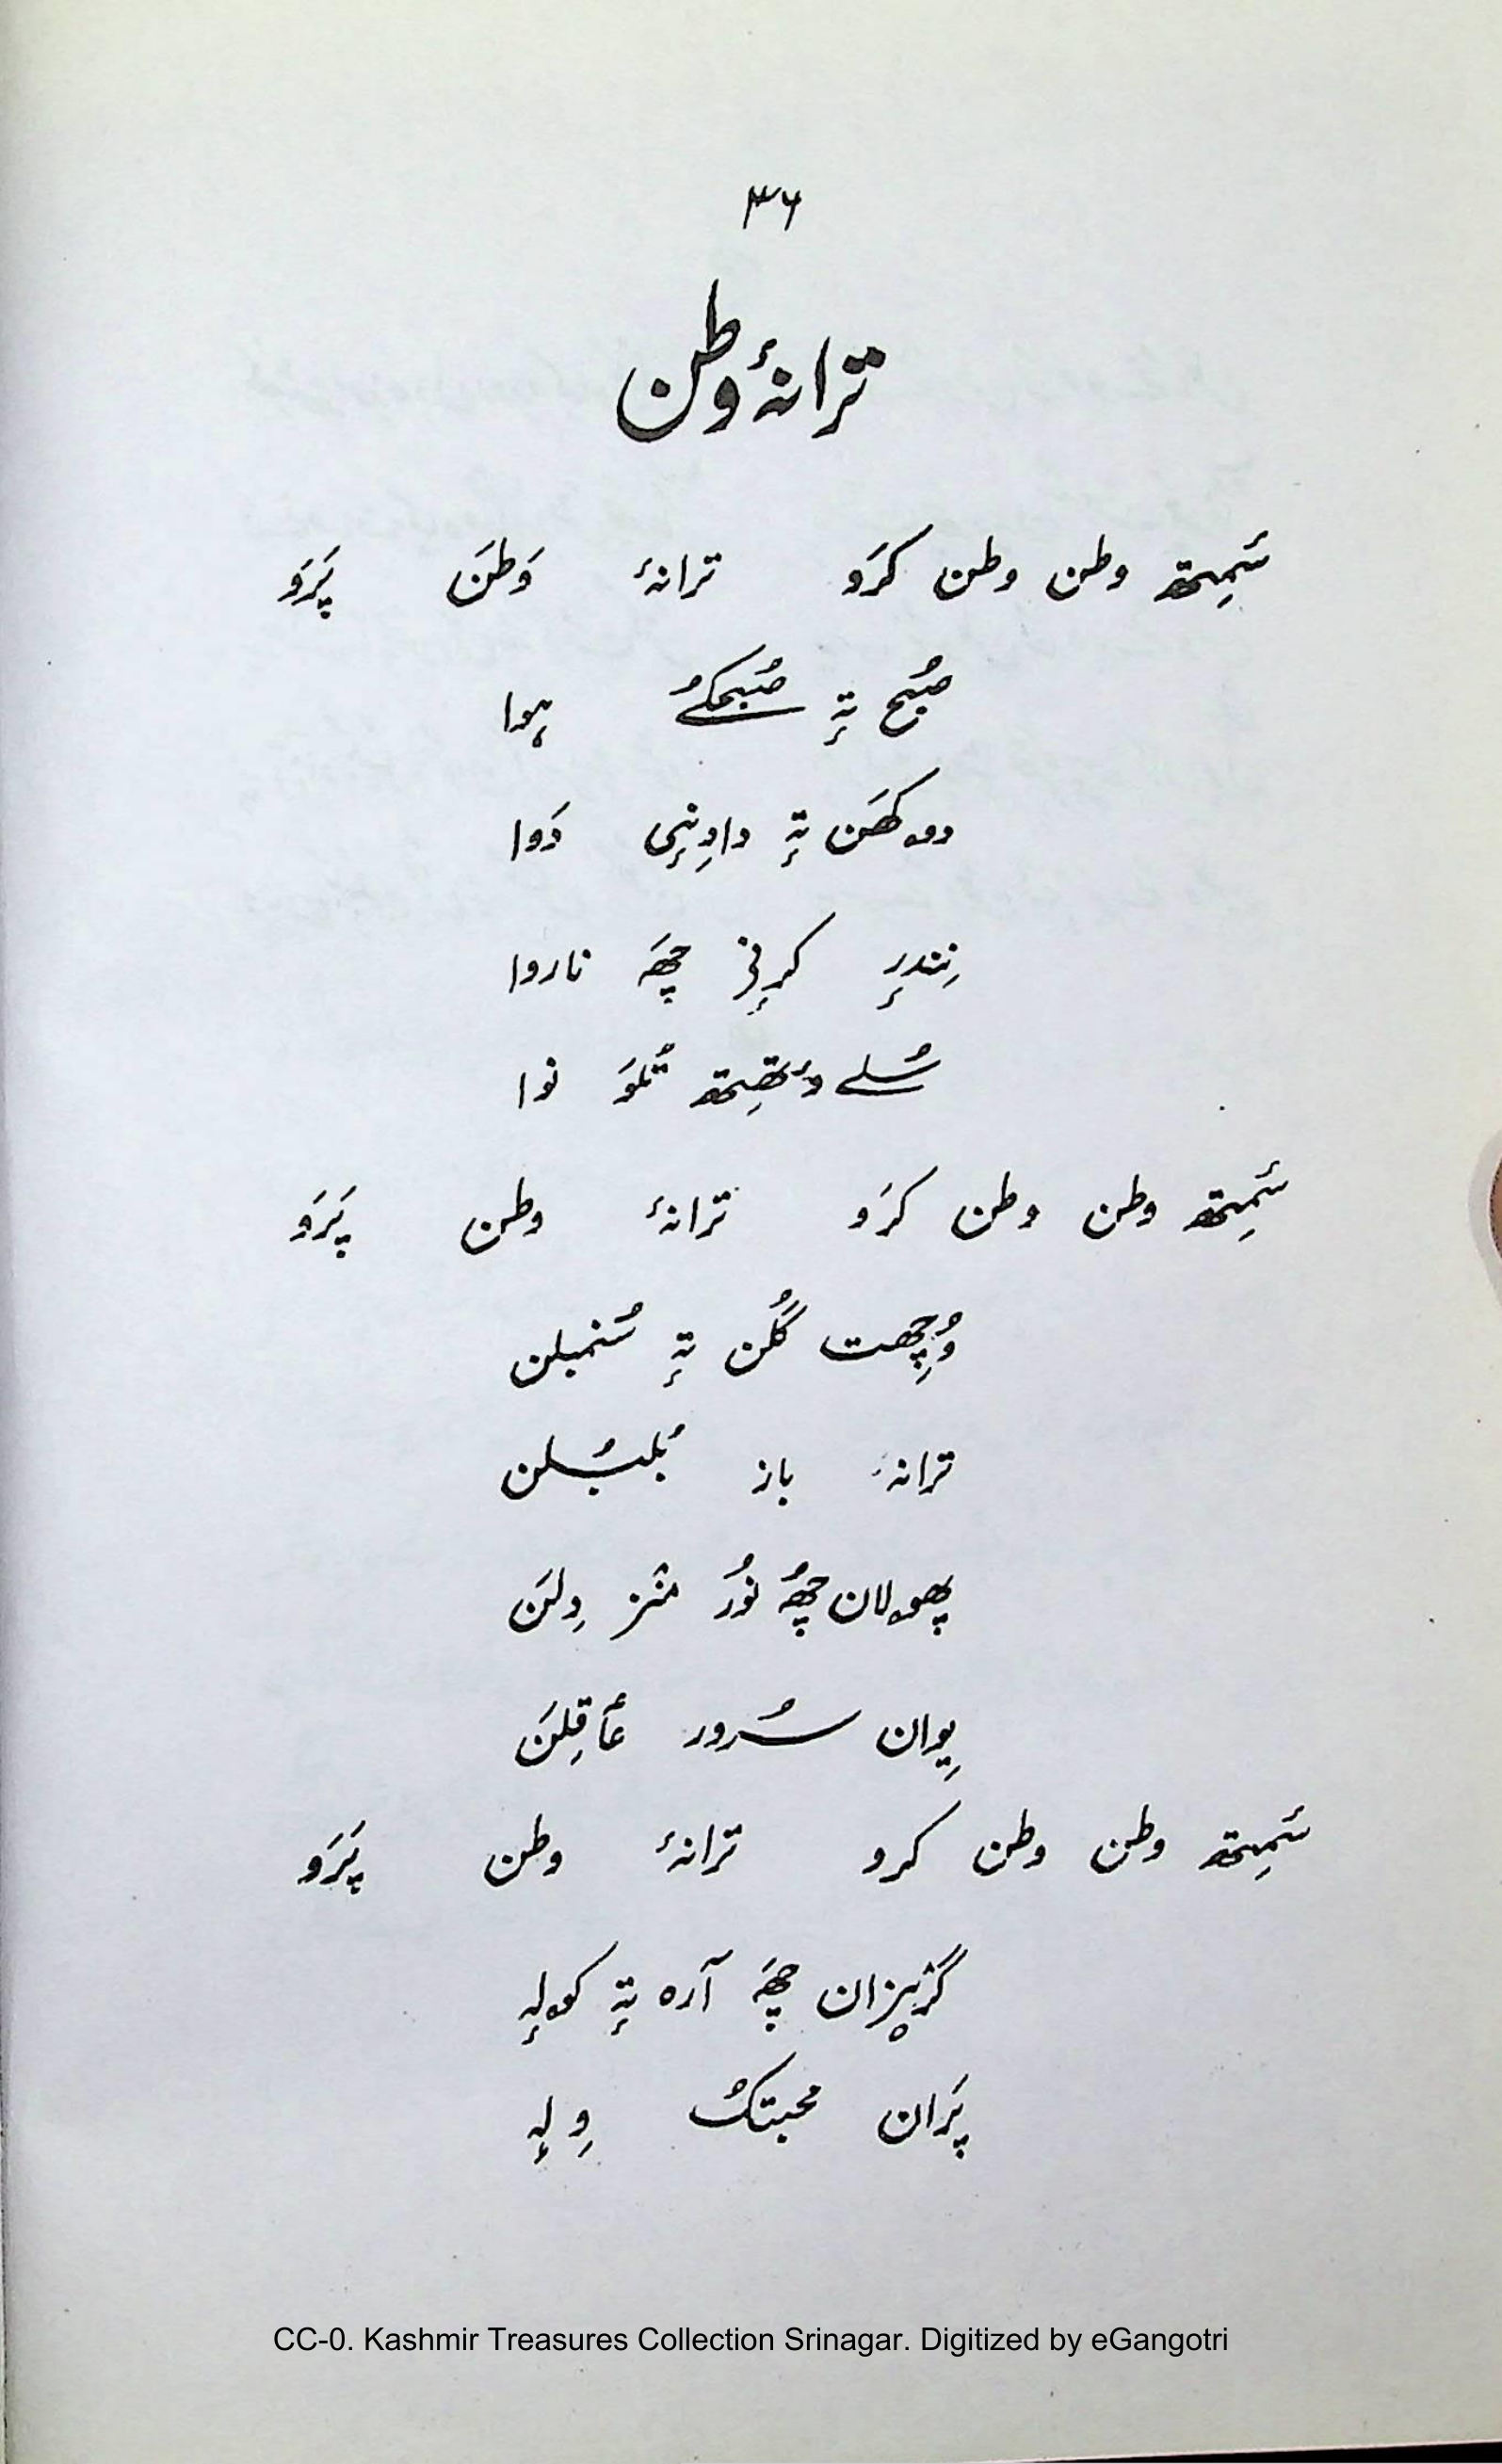 ۳۶
ترانۂ وطن
سَمِتھ وطن وطن کرَو ترانۂ وَطنَ پَرَو
صُبح تہٕ صُبحکُے ہوا
دۄکھَن تہٕ دادِنٕی دَوا
نِندرٕ کرٕنی چھَہ ناروا
سُلے وۄتھِتھ تُلوَ نوا
سَمِتھ وطن وطن کرَو ترانۂ وطن پَرَو
وُچھِت گُلن تہٕ سُنمبلن
ترانہ باز بُلبُلن
پھۄلان چھُہ نوُر منٛز دِلنَ
یِوان سُرور عٲقِلنَ
سَمِتھ وطن وطن کرو ترانۂ وطن پَرَو
گرٛیزان چھَہ آرہ تہٕ کۄلہٕ
پَران محبتکُ وِلہٕ
CC-0. Kashmir Treasures Collection Srinagar. Digitized by eGangotri